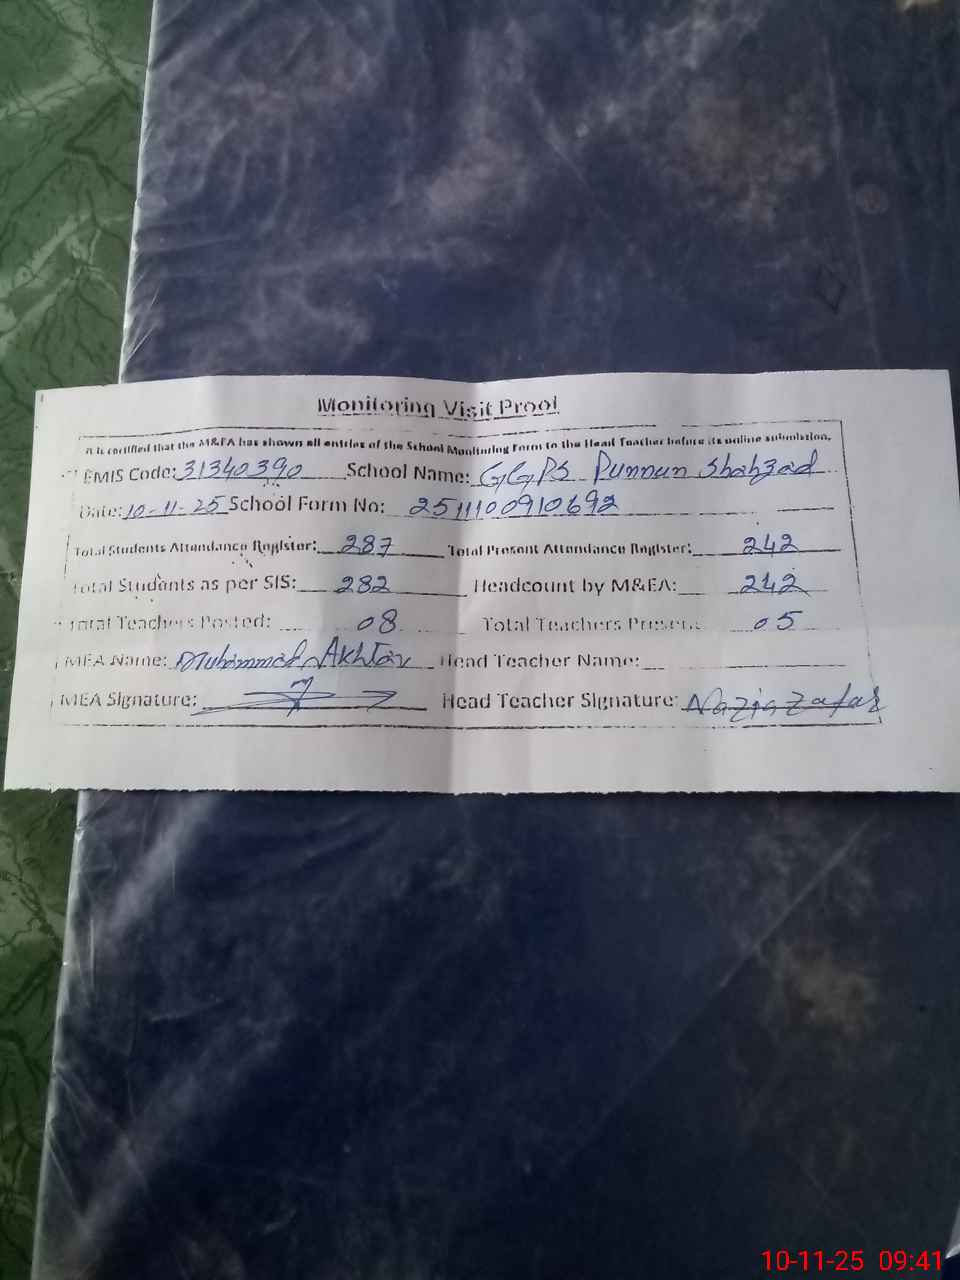 Monitoring Visit Proof
It is certified that the M&EA has shown all entries of the School Monitoring Form to the Head Teacher before its online submission.
EMIS Code: 31340390 School Name: GGPS Punnun Shahzad
Date: 10-11-25 School Form No: 2511100910692
Total Students Attendance Register: 287 Total Present Attendance Register: 242
Total Students as per SIS: 282 Headcount by M&EA: 242
Total Teachers Posted: 08 Total Teachers Present: 05
MEA Name: Muhammad Akhtar Head Teacher Name:
MEA Signature: Head Teacher Signature: Nazia Zafar
10-11-25 09:41